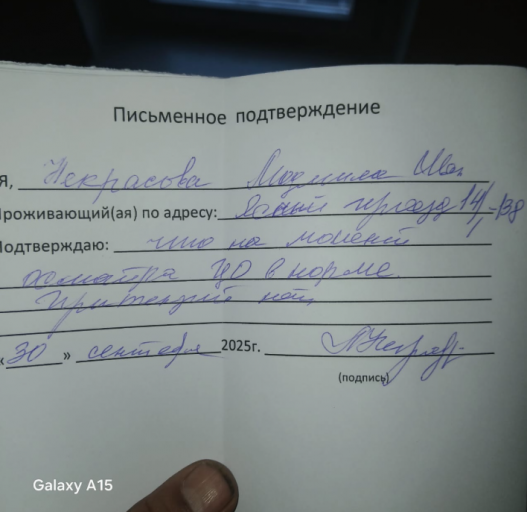 Письменное подтверждение
Я, Некрасова Людмила Ив
Проживающий(ая) по адресу: Ясный проезд 14/1-138
Подтверждаю: что на момент
осмотра ЦО в норме.
Притензий нет
«30» сентября 2025г.
(подпись)
Galaxy A15